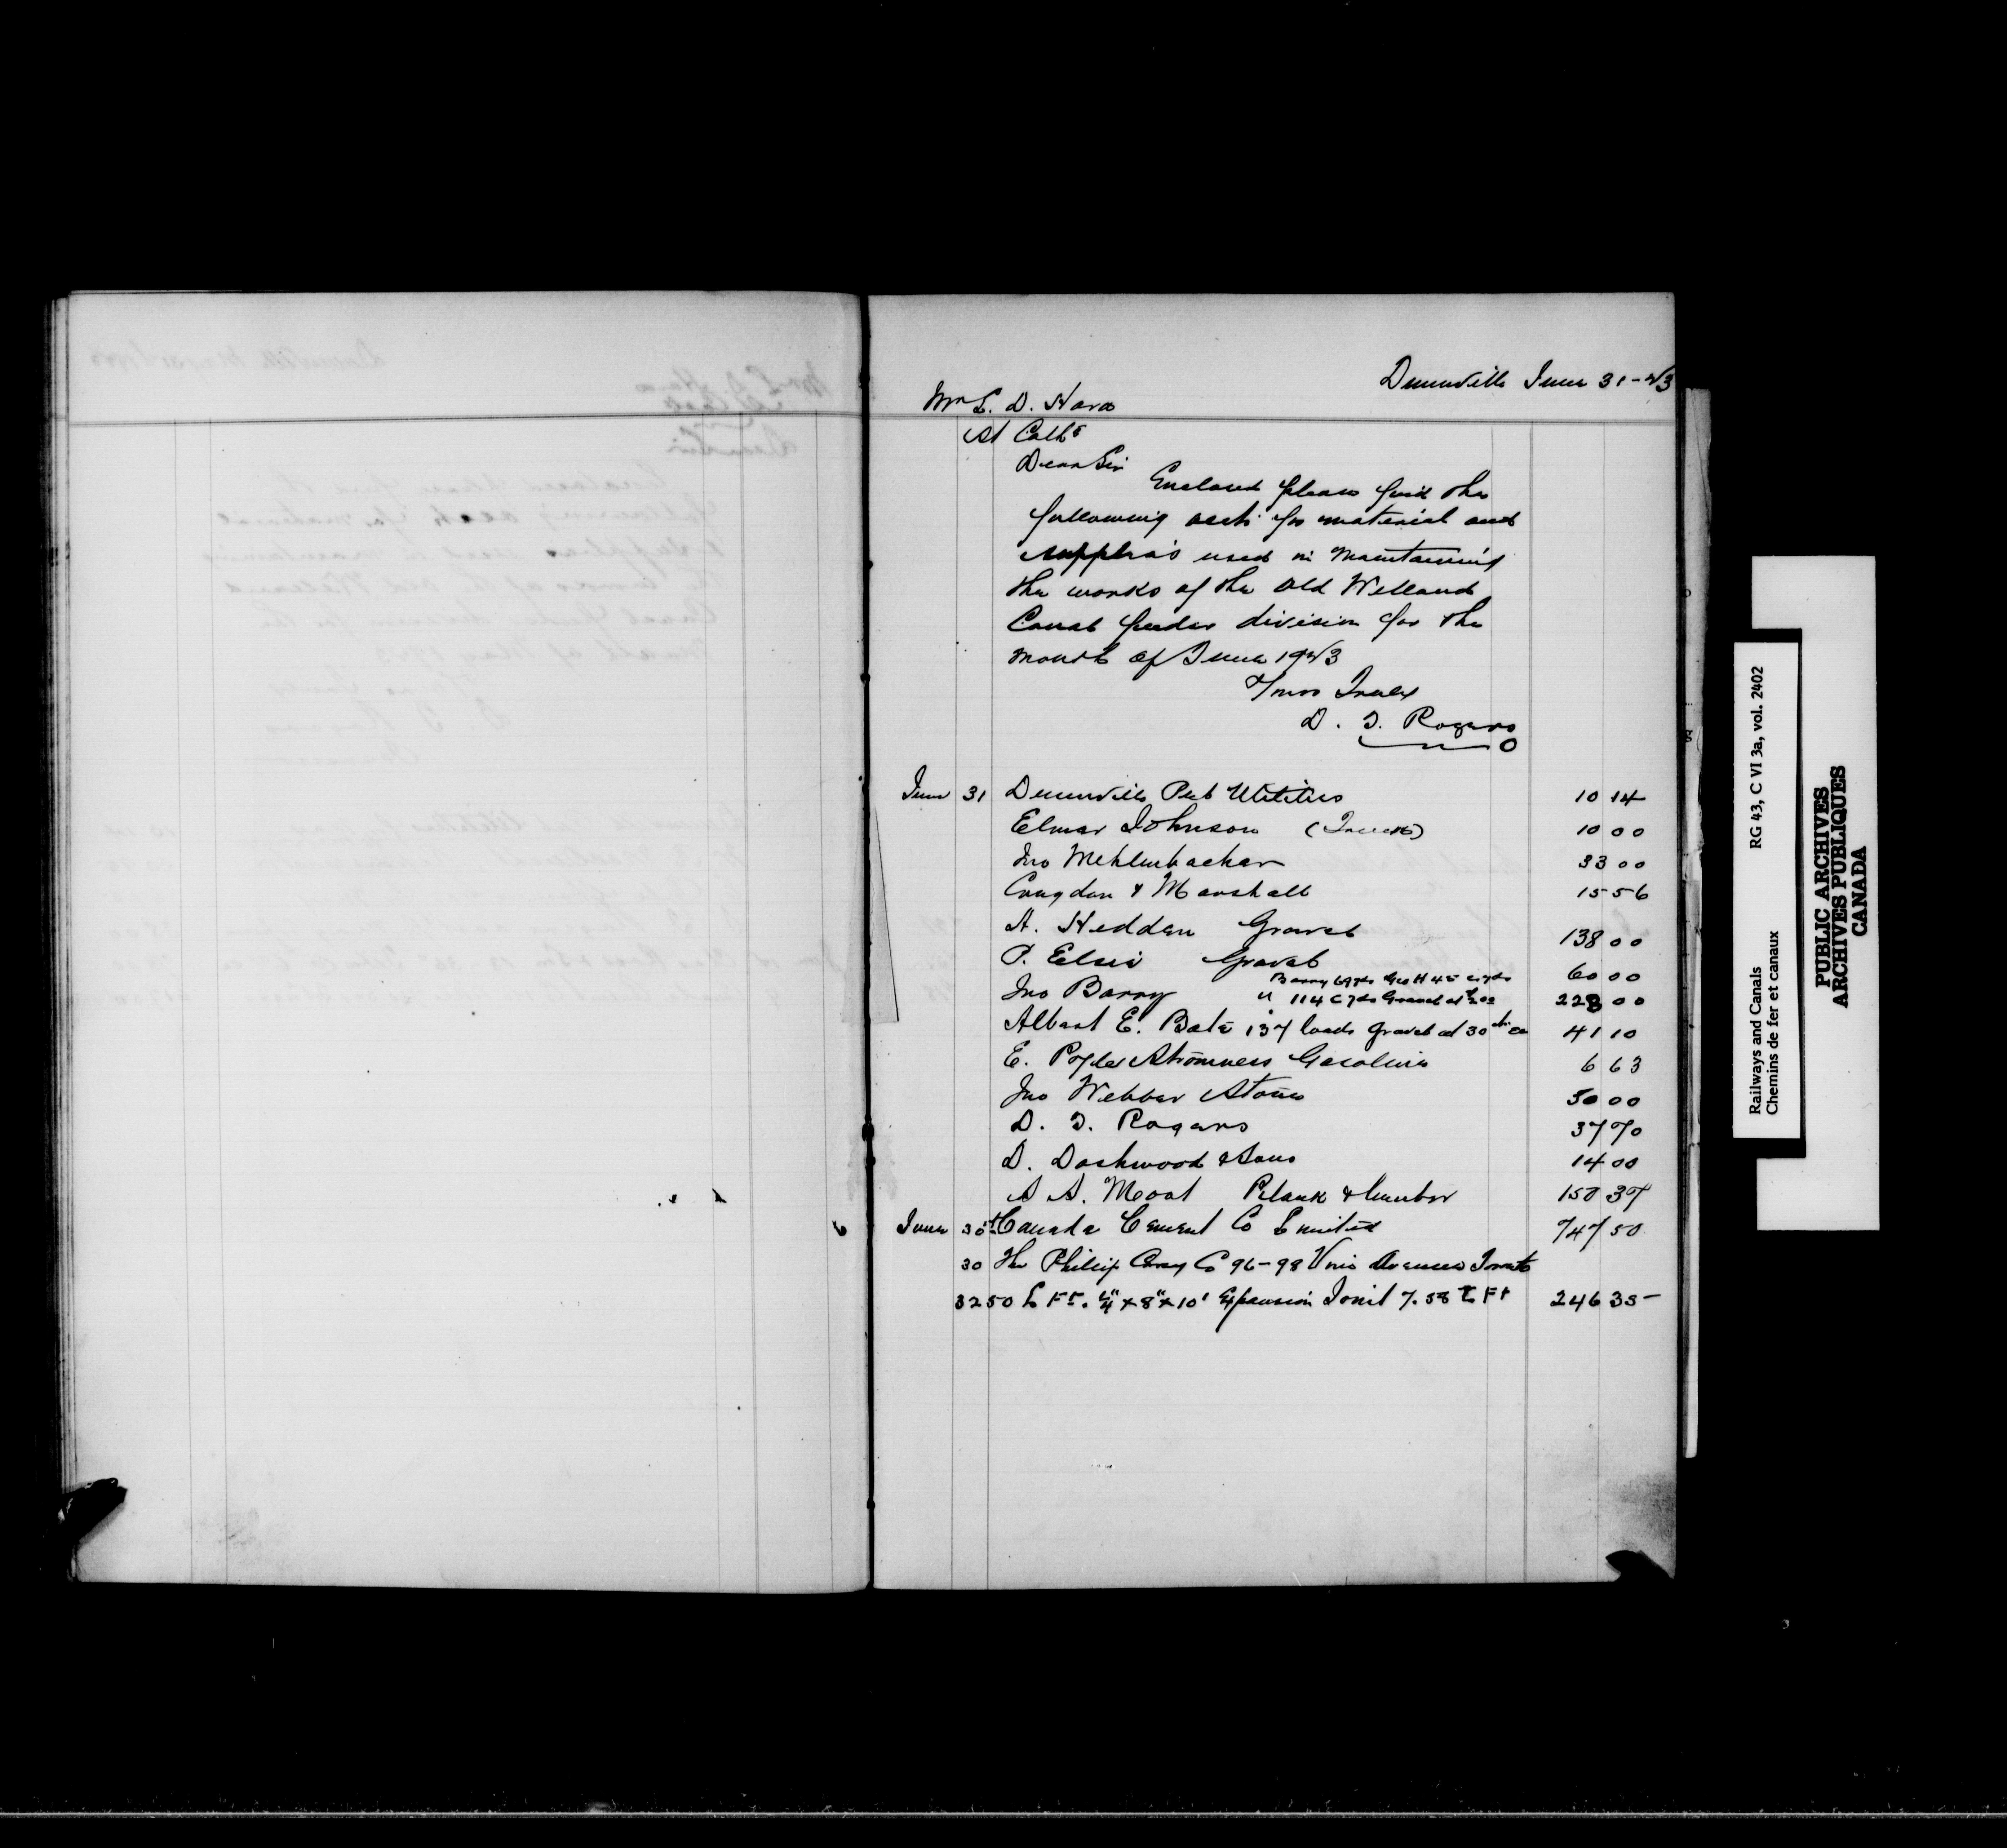 Dunnville June 31-23
Mr L. D. Hara
St Caths
Dear Sir
Enclosed please find the
following accts for material and
supplies used in maintaining
the works of the old Welland
Canal feeder division for the
month of June 1923
Yours Truly
D. T. Rogers
June 31 Dunnville Pub Utilities 10 14
Elmer Johnson 10 00
Jno Mehlenbacher 33 00
Congdon & Marshall 15 56
A. Hedden Gravel 138 00
P. Elsie Gravel 60 00
Barry 69 yds Geo H 45 c yds
Jno Barry " 114 C yds Gravel at 2 00 228 00
Albert E. Bate 137 loads gravel at 30 cts ea 41 10
E. Stromness Gasoline 6 63
Jno Webber Stone 50 00
D. T. Rogers 37 70
D. Dashwood & Sons 14 00
A. Moat Plank & lumber 150 37
June 30th Canada Cement Co Limited 747 50
30 The Philip Carey Co 96-98 Avenue Toronto
3250 L Ft. 1/4" x 8" x 10' Expansion Joint 7.58 Ft 246 35
RG 43, C VI 3a, vol. 2402
Railways and Canals
Chemins de fer et canaux
PUBLIC ARCHIVES
ARCHIVES PUBLIQUES
CANADA